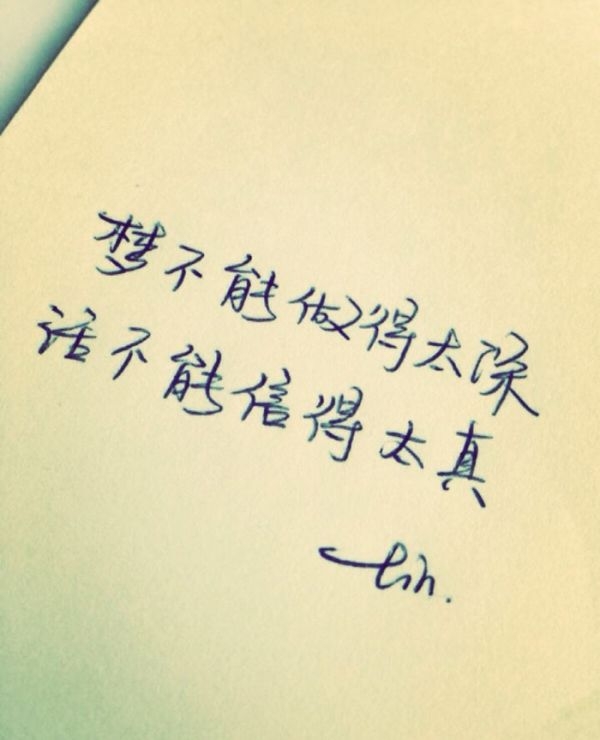 梦不能做得太深
话不能信得太真
tin.